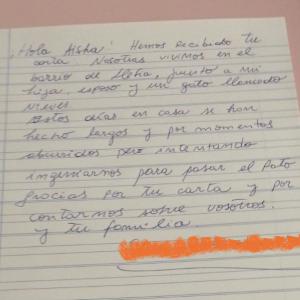 ¡Hola Aisha! Hemos recibido tu
carta. Nosotras vivimos en el
barrio de , junto a mi
hija, esposo y un gato llamado
nieves.
Estos días en casa se han
hecho largos y por momentos
aburridos pero intentando
ingeniarnos para pasar el rato
gracias por tu carta y por
contarnos sobre vosotros.
y tu familia.